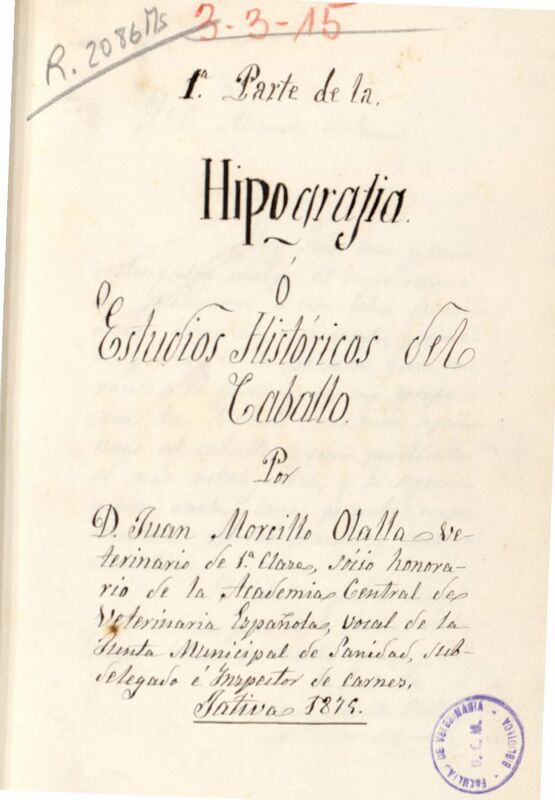 R. 2086 Ms
3-3-15
1ª. Parte de la.
Hipografia.
ó
Estudios Históricos del
Caballo.
Por
D. Juan Morcillo Olalla Ve-
terinario de 1ª. Clase, sócio honora-
rio de la Academia Central de
Veterinaria Española, vocal de la
Junta Municipal de Sanidad, sub-
delegado é Inspector de carnes,
Jativa 1875.
FACULTAD DE VETERINARIA - BIBLIOTECA -
U. C. M.